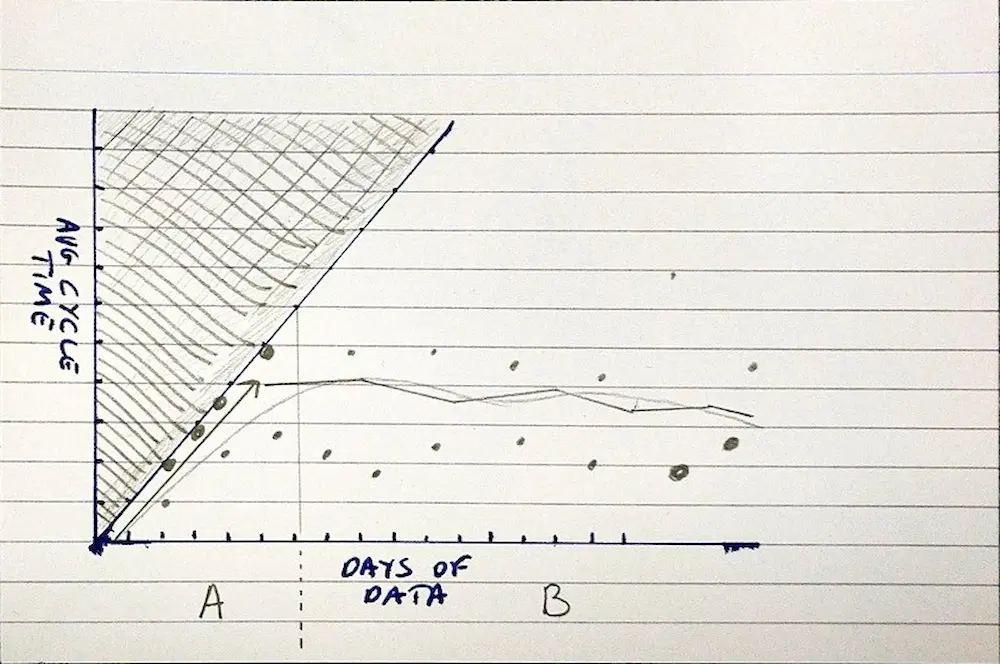 AVG CYCLE
TIME
DAYS OF
DATA
A
B